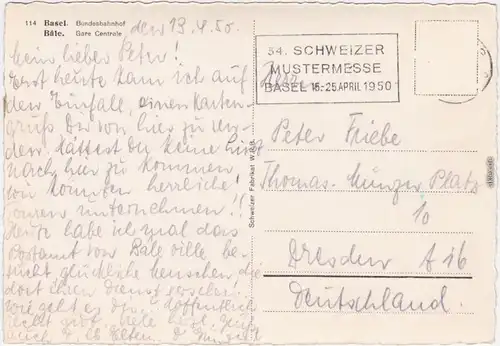 114 Basel. Bundesbahnhof
Bâle. Gare Centrale
den 13.4.50.
Mein lieber Peter!
Erst heute kam ich auf
den Einfalle, einen Karten-
gruß Dir von hier zu
Hättest Du keine Lust
nach hier zu kommen
wir könnten herrliche
Touren unternehmen!!
Heute habe ich mal das
Postamt von Bâle ville be-
sucht glückliche Menschen die
dort ihren Dienst
wie geht es Dir? Hoffentlich
recht gut. Viele
auch
34. SCHWEIZER
MUSTERMESSE
BASEL 15.-25. APRIL 1950
Herr
Peter Friebe
Thomas-Münzer Platz
10
Dresden A 16
Deutschland.
Schweizer Fabrikat